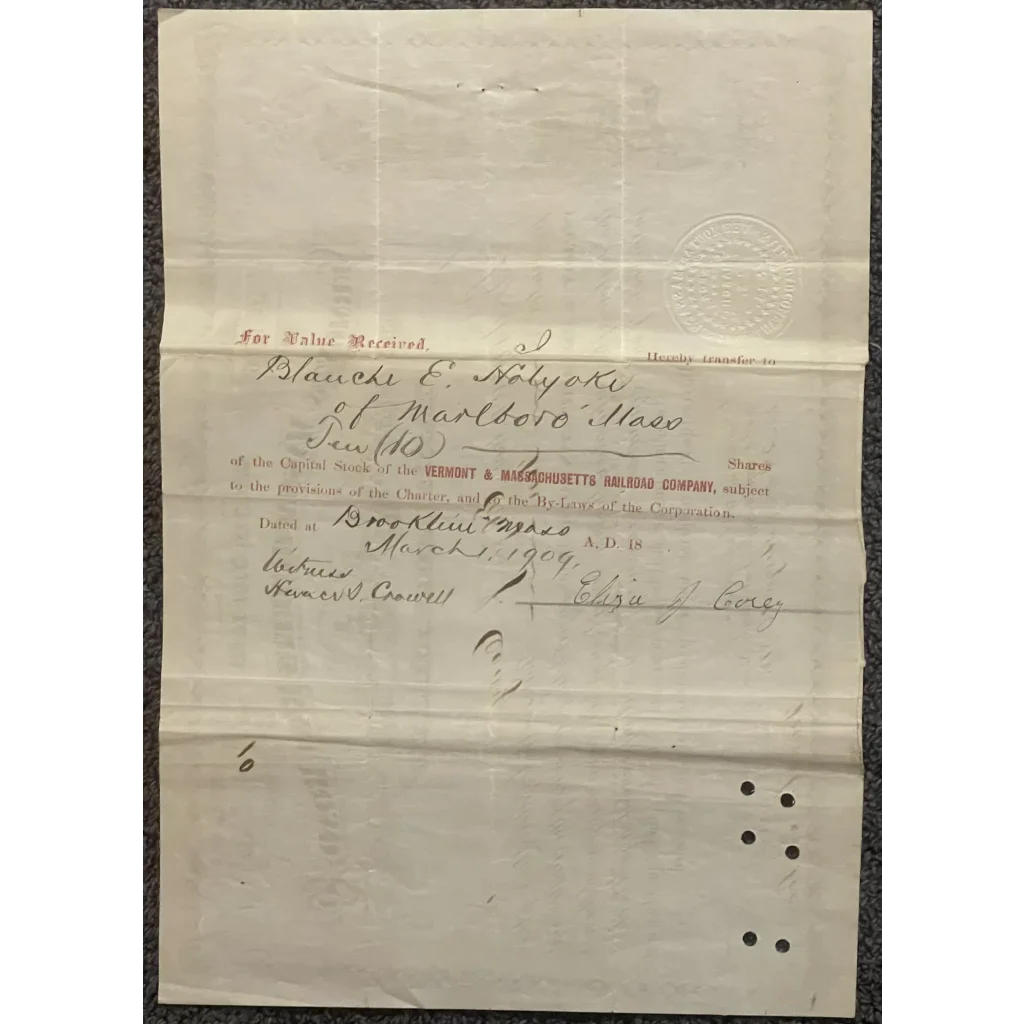 For Value Received, I Hereby transfer to
Blanche E. Holyoke
of Marlboro Mass
Ten (10) Shares
of the Capital Stock of the VERMONT & MASSACHUSETTS RAILROAD COMPANY, subject
to the provisions of the Charter, and to the By-Laws of the Corporation.
Dated at Brookline Mass A. D. 18
March 1, 1909.
Witness
Crowell Eliza J Corey
10